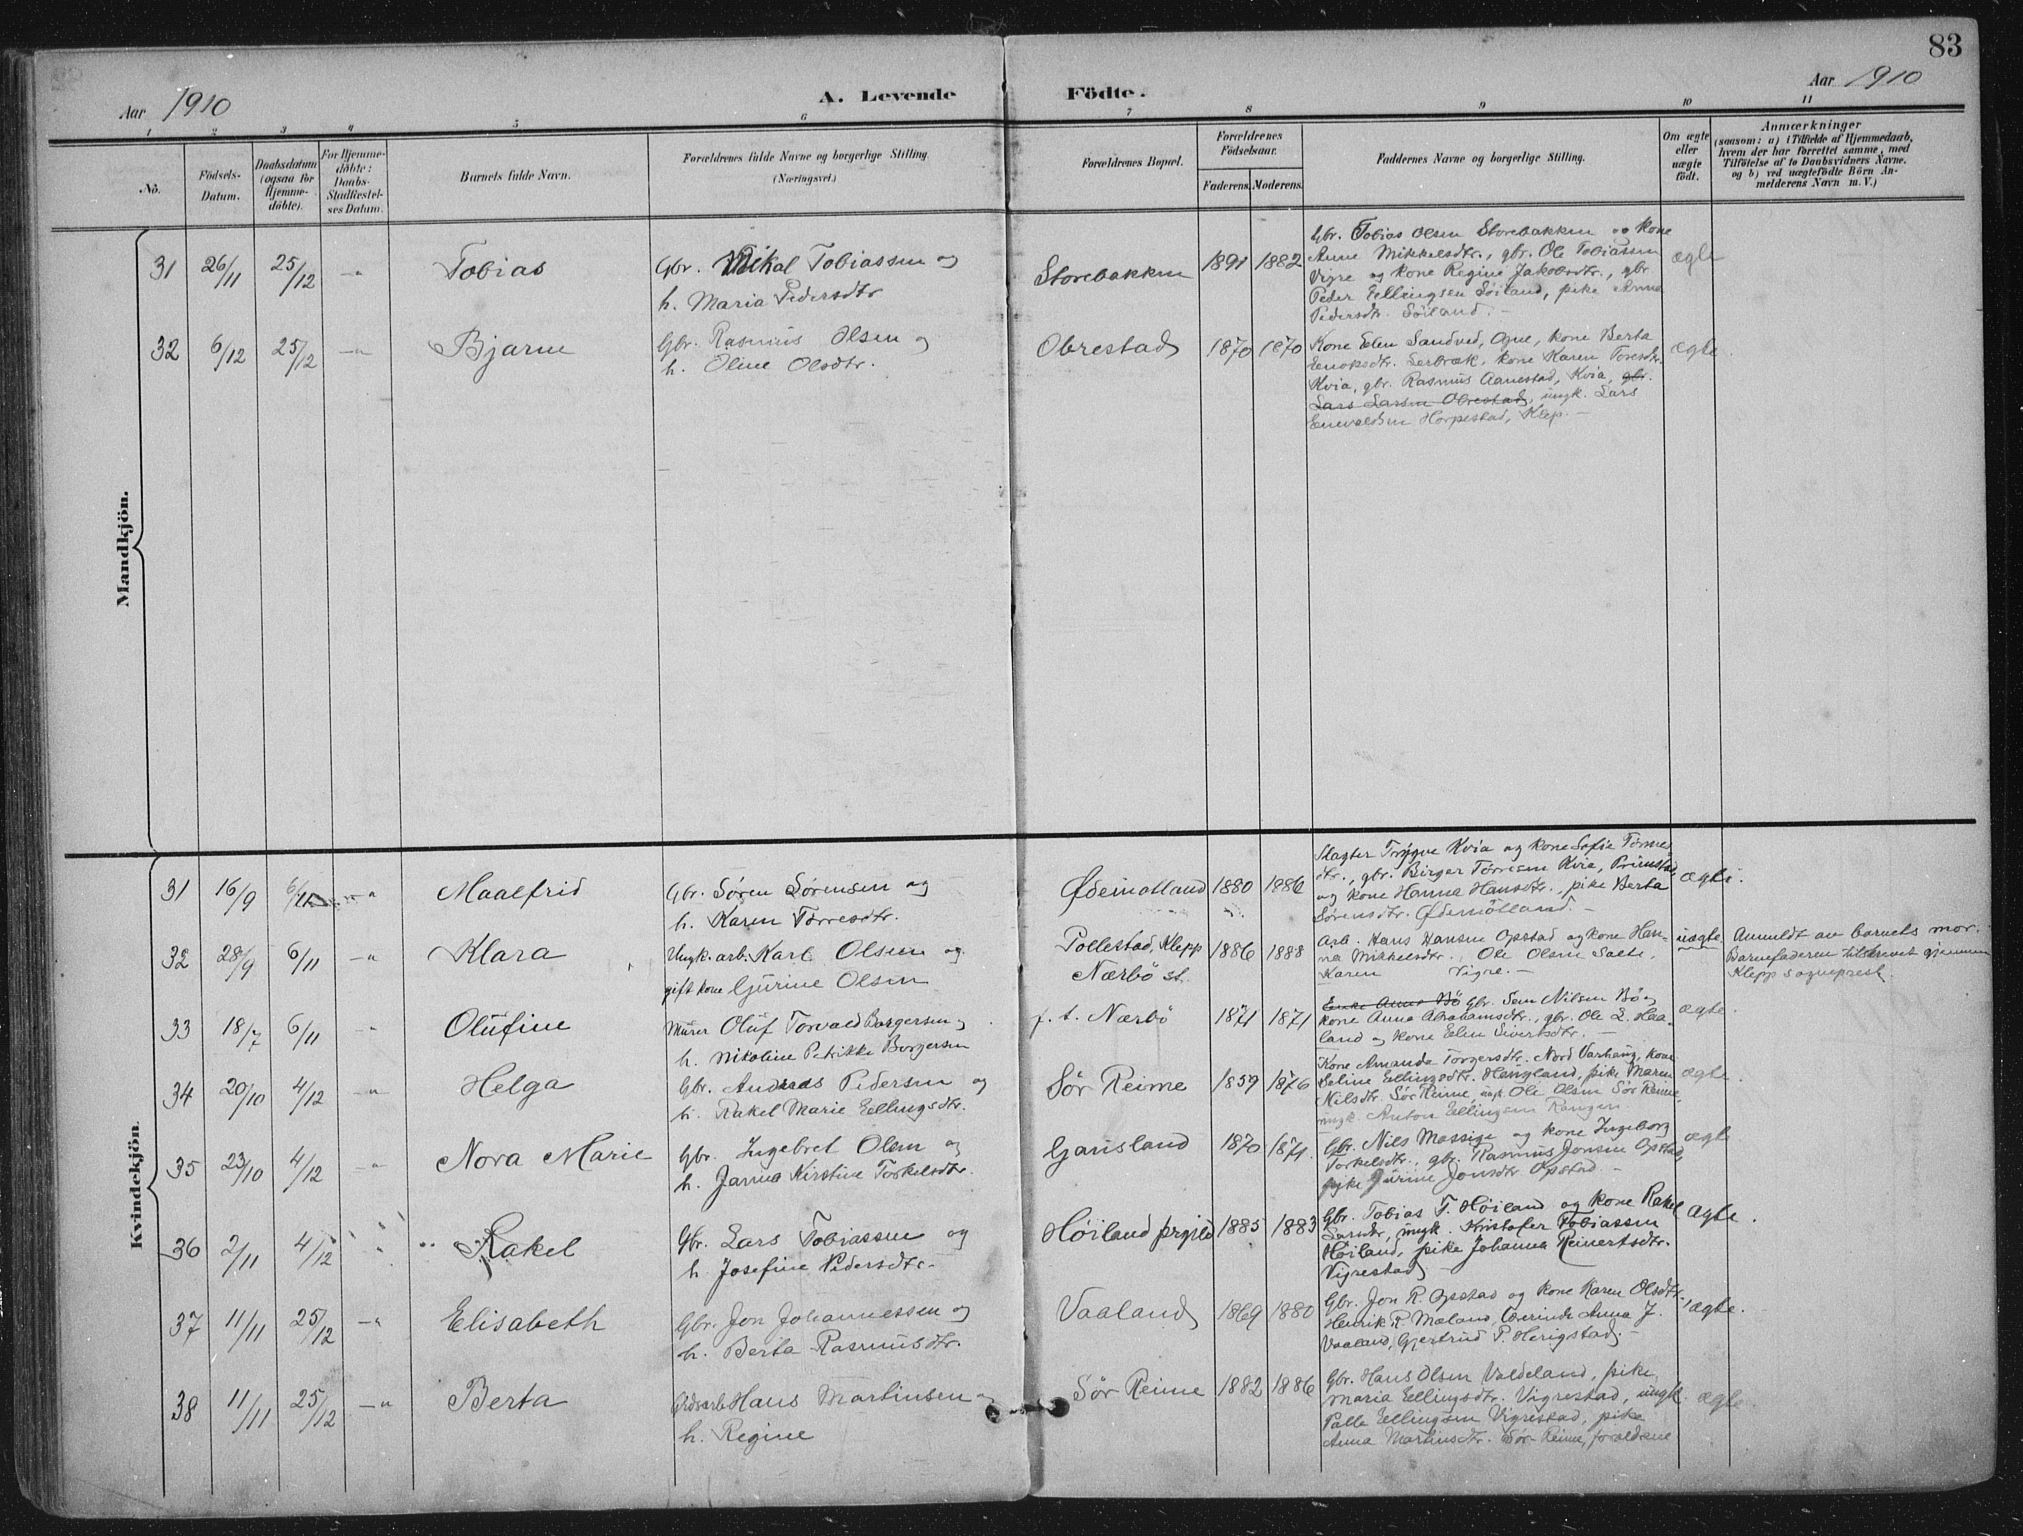 83
Aar 1910
A. Levende Födte.
Aar 1910
1 2 3 4 5 6 7 8 9 10 11
Nô.
Födsels-
Datum.
Daabsdatum
(ogsaa for
Hjemme-
döbte).
For Hjemme-
döbte:
Daabs-
Stadfæstel-
ses Datum.
Barnets fulde Navn.
Forældrenes fulde Navne og borgerlige Stilling.
(Næringsvei.)
Forældrenes Bopæl.
Forældrenes
Födselsaar.
Faderens. Moderens.
Faddernes Navne og borgerlige Stilling.
Om ægte
eller
uægte
födt.
Anmærkninger
(saasom: a) i Tilfælde af Hjemmedaab,
hvem der har forrettet samme, med
Tilföielse af to Daabsvidners Navne.
og b) ved uægtefödte Börn An-
melderens Navn m. V.)
Mandkjön.
31 26/11 25/12 -"- Tobias
Gbr. Mikal Tobiassen og
h. Maria Pedersdtr
Storebakken 1891 1882
Gbr. Tobias Olsen Storebakken og kone
Anne Mikkelsdtr., gbr. Ole Tobiassen
Vigre og kone Regine Jakobsdtr., gbr.
Peder Ellingsen Söiland, pike Anna
Pedersdtr. Söiland. -
ægte
32 6/12 25/12 -"- Bjarne
Gbr. Rasmus Olsen og
h. Oline Olsdtr.
Obrestad 1870 1870
Kone Elen Sandved, Ogne, kone Berta
Enoksdtr. Serbræk, kone Karen Toresdtr.
Kvia, gbr. Rasmus Aanestad, Kvia, gbr.
Lars Larsen Obrestad, ungk. Lars
Enevaldsen Horpestad, Klep. -
ægte.
Kvindekjön.
31 16/9 6/11 -"- Maalfrid
Gbr. Søren Sørensen og
h. Karen Torresdtr.
Ødemotland 1880 1886
Slagter Trygve Kvia og kone Sofie Torres-
dtr., gbr. Birger Torresen Kvia,
og kone Hanna Hansdtr., pike Berta
Sørensdtr. Ødemotland. -
ægte.
32 28/9 6/11 -"- Klara
Ungk. arb. Karl Olsen og
gift kone Gurine Olsen
Pollestad, Klepp
Nærbö st.
1886 1888
Arb. Hans Hansen Opstad og kone Han-
na Mikkelsdtr., Ole Olsen Saete,
Karen Vigre. -
uægte
Anmeldt av barnets mor.
Barnefaderen tilskrevet gjennem
Klepp sogneprest.
33 18/7 6/11 -"- Olufine
Murer Oluf Torvald Borgersen og
h. Nikoline Petrikke Borgersen
f. t. Nærbö 1871 1871
Enke Anna Bö gbr. Sem Nilsen Bö og
kone Anna Abrahamsdtr., gbr. Ole L. Haa-
land og kone Elen Sivertsdtr. -
ægte.
34 20/10 4/12 -"- Helga
Gbr. Andreas Pedersen og
h. Rakel Marie Ellingsdtr.
Sör Reime 1859 1876
Kone Amanda Torgersdtr. Nord Varhaug, kone
Seline Ellingsdtr. Haugland, pike Maren
Nilsdtr. Sör Reime, ungk. Ole Olsen Sör Reime,
ungk. Anton Ellingsen
ægte.
35 23/10 4/12 -"- Nora Marie
Gbr. Ingebret Olsen og
h. Janna Kirstine Torkelsdtr.
Gausland 1870 1871.
Gbr. Nils Massige og kone Ingeborg
Torkelsdtr., gbr. Rasmus Jonsen Opstad,
pike Gurine Jonsdtr Opstad -
ægte
36 2/11 4/12 " Rakel
Gbr. Lars Tobiassen og
h. Josefine Pedersdtr.
Höiland 1885 1883
Gbr. Tobias T. Höiland og kone Rakel
Larsdtr, ungk. Kristofer Tobiassen
Höiland, pike Johanna Reinertsdtr.
Vigrestad -
ægte.
37 11/11 25/12 -"- Elisabeth
Gbr. Jon Johannessen og
h. Berta Rasmusdtr.
Vaaland 1869 1880
Gbr. Jon R. Opstad og kone Karen Olsdtr.,
Henrik R. Mæland, Lærerinde Anna J.
Vaaland, Gjertrud P. Herigstad. -
ægte.
38 11/11 25/12 -"- Berta
Hans Martinsen og
h. Regine
Sör Reime 1882 1886
Gbr. Hans Olsen Valdeland, pike
Maria Ellingsdtr. Vigrestad, ungk.
Palle Ellingsen Vigrestad, pike
Anna Martinsdtr. Sör Reime, forældrene
ægte.